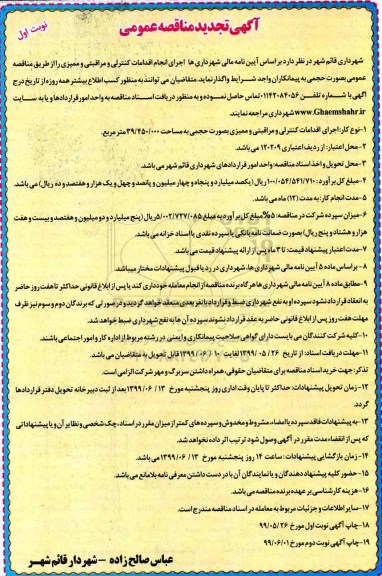 آگهی تجدید مناقصه عمومی
نوبت اول
شهرداری قائم شهر در نظر دارد بر اساس آیین نامه مالی شهرداری ها اجرای انجام اقدامات کنترلی و مراقبتی و ممیزی را از طریق مناقصه
عمومی بصورت حجمی به پیمانکاران واجد شرایط واگذار نماید. متقاضیان می توانند به منظور کسب اطلاع بیشتر همه روزه از تاریخ درج
آگهی با شماره تلفن ۰۱۱۴۲۰۸۴۰۵۶ تماس حاصل نموده و به منظور دریافت اسناد مناقصه به واحد امور قراردادها و یا به سایت
www.Ghaemshahr.ir شهرداری مراجعه نمایند.
۱-نوع کار: اجرای اقدامات کنترلی و مراقبتی و ممیزی بصورت حجمی به مساحت ۳۹/۴۵۰/۰۰۰ متر مربع.
۲-محل اعتبار: از ردیف اعتباری ۱۲۰۲۰۹ می باشد.
۳-محل تحویل و اخذ اسناد مناقصه: واحد امور قراردادهای شهرداری قائم شهر می باشد.
۴-مبلغ کل برآورد: ۱۰۰/۰۵۴/۵۴۱/۷۱۰ ریال (یکصد میلیارد و پنجاه و چهار میلیون و پانصد و چهل و یک هزار و هفتصد و ده ریال) می باشد.
۵-مدت انجام کار: به مدت (۱۲) ماه می باشد.
۶-میزان سپرده شرکت در مناقصه: ۵% مبلغ کل برآورد به مبلغ ۵/۰۰۲/۷۲۷/۰۸۵ ریال (پنج میلیارد و دو میلیون و هفتصد و بیست و هفت
هزار و هشتاد و پنج ریال) بصورت ضمانت نامه بانکی یا سپرده نقدی یا اسناد خزانه می باشد.
۷-مدت اعتبار پیشنهاد قیمت: تا ۳ ماه پس از ارائه پیشنهاد قیمت می باشد.
۸-براساس ماده ۵ آیین نامه مالی شهرداری ها، شهرداری در رد یا قبول پیشنهادات مختار میباشد.
۹-مطابق ماده ۸ آیین نامه مالی شهرداری ها هرگاه برنده مناقصه از انجام معامله خودداری کند یا پس از ابلاغ قانونی حداکثر تا هفت روز حاضر
به انعقاد قرارداد نشود سپرده او به نفع شهرداری ضبط و قرارداد با نفر بعدی منعقد خواهد گردید و در صورتی که برندگان دوم و سوم نیز ظرف
مهلت هفت روز پس از ابلاغ قانونی حاضر به عقد قرارداد نشوند سپرده آن ها به نفع شهرداری ضبط خواهد شد.
۱۰-کلیه شرکت کنندگان می بایست دارای گواهی صلاحیت پیمانکاری و ایمنی در رشته مربوط از اداره کار و امور اجتماعی باشند.
۱۱-مهلت دریافت اسناد: از تاریخ ۲۶ / ۰۵ /۱۳۹۹ لغایت ۱۰ / ۰۶ /۱۳۹۹ قابل تحویل به متقاضیان می باشد.
تذکر: جهت خرید اسناد مناقصه برای متقاضیان حقوقی، همراه داشتن سربرگ و مهر شرکت الزامی است.
۱۲- زمان تحویل پیشنهادات: حداکثر تا پایان وقت اداری روز پنجشنبه مورخ ۱۳ / ۰۶ /۱۳۹۹ بعد از ثبت دبیرخانه تحویل دفتر قراردادها
گردد.
۱۳-به پیشنهادات فاقد سپرده یا امضاء، مشروط و مخدوش و سپرده های کمتر از میزان مقرر در اسناد، چک شخصی و نظایر آن و یا پیشنهاداتی
که پس از انقضاء مدت مقرر در آگهی وصول شود ترتیب اثر داده نخواهد شد.
۱۴- زمان بازگشایی پیشنهادات: ساعت ۱۴ روز پنجشنبه مورخ ۱۳ / ۰۶ /۱۳۹۹ می باشد.
۱۵-حضور کلیه پیشنهاد دهندگان و یا نمایندگان آن با در دست داشتن معرفی نامه بلامانع می باشد.
۱۶-هزینه کارشناسی بر عهده برنده مناقصه می باشد.
۱۷-سایر اطلاعات و جزئیات مربوط به معامله در اسناد مناقصه مندرج است.
۱۸-چاپ آگهی نوبت اول مورخ ۹۹/۰۵/۲۶
۱۹-چاپ آگهی نوبت دوم مورخ ۹۹/۰۶/۰۱
عباس صالح زاده - شهردار قائم شهر